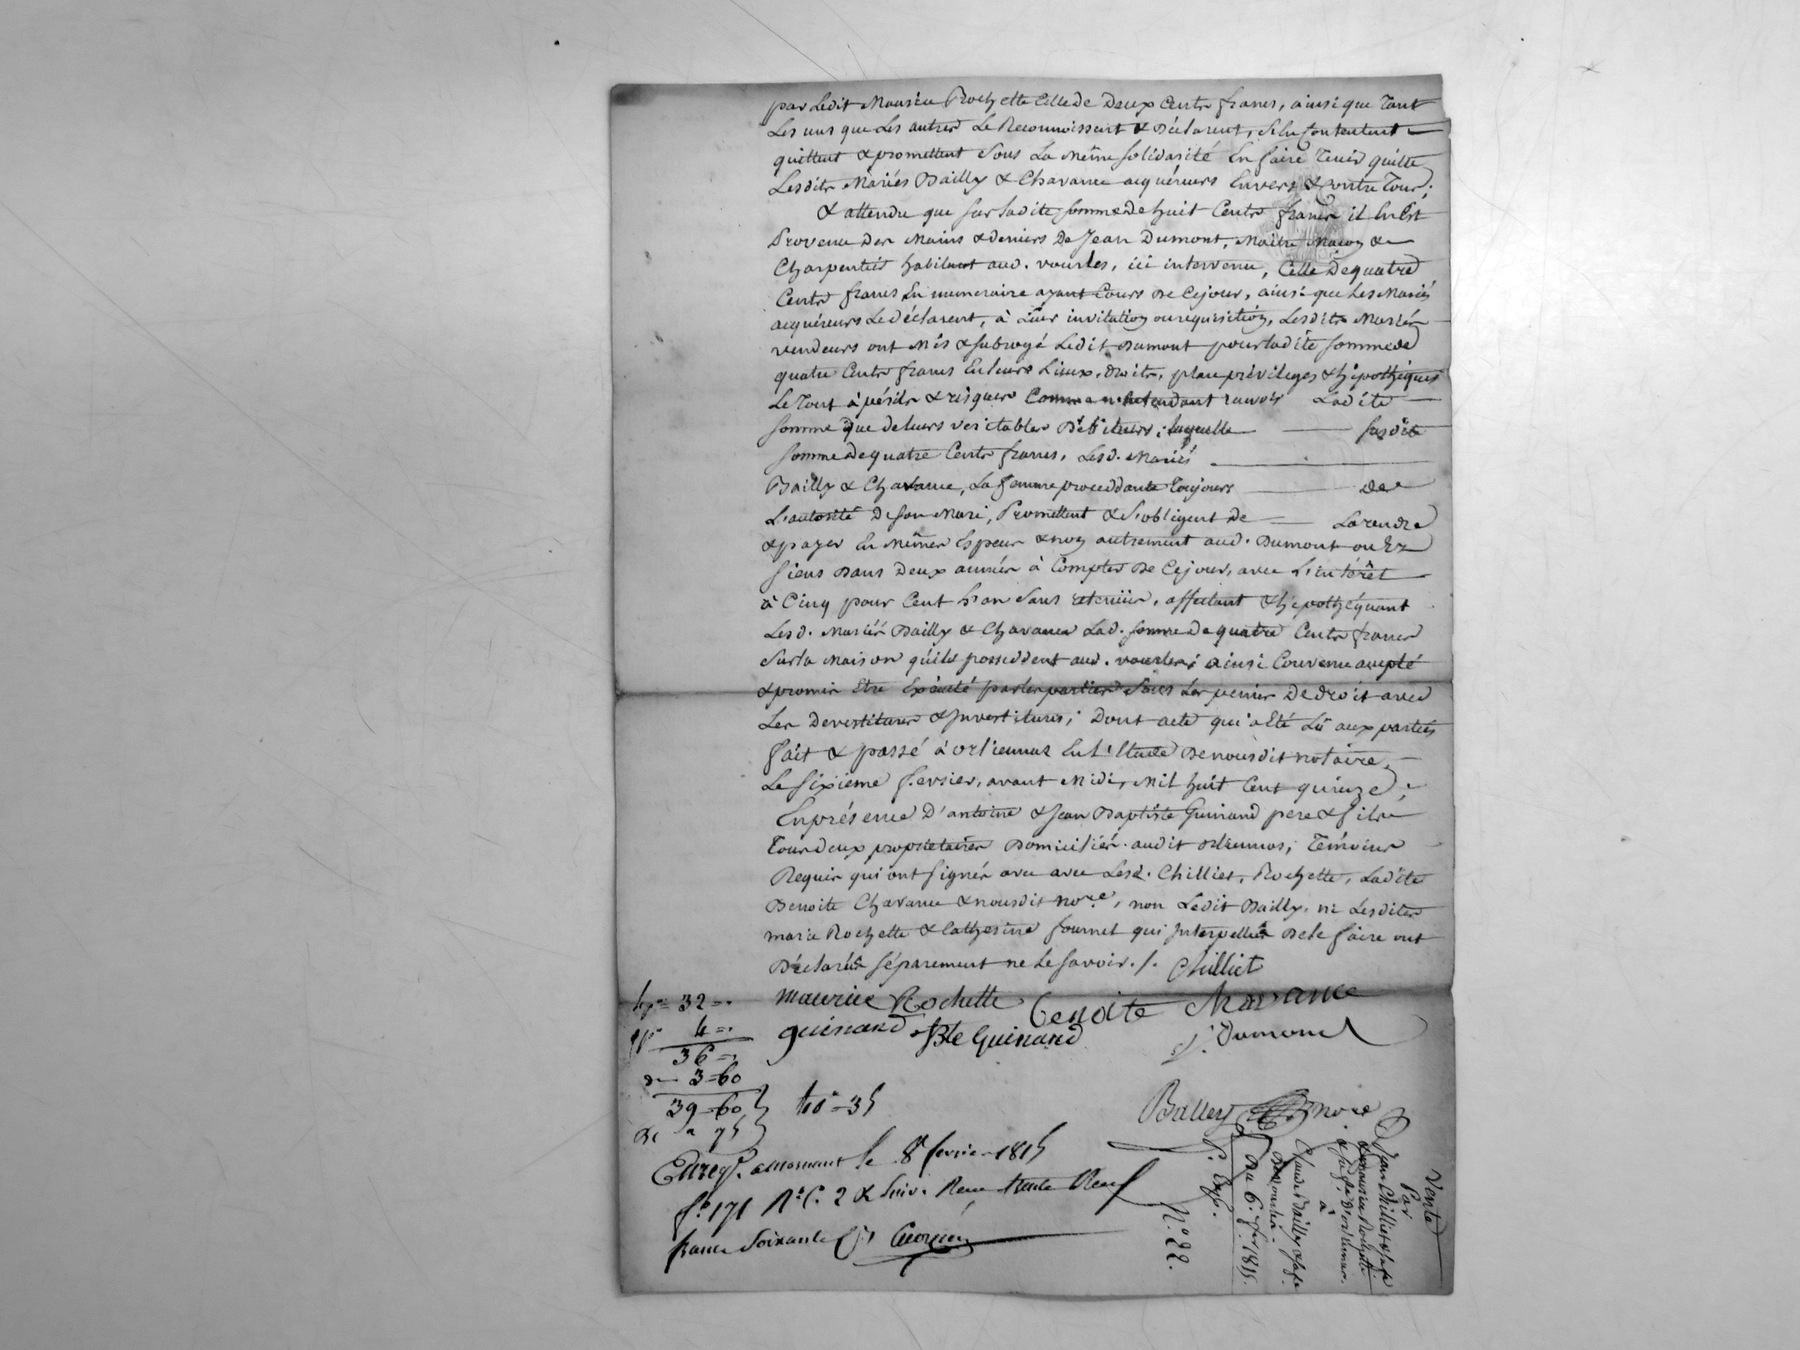 par Ledit Maurice Rochette Celle de Deux Cents francs, ainsi que Tant
Les uns que Les autres Le Reconnoissent & Déclarent, S'en Contentent
quittent & promettent Sous La Même Solidarité En faire Tenir quitte
Lesdits Mariés Bailly & Chavanne acquéreurs Envers & Contre Tous;
& attendu que sur Ladite Somme de huit Cents francs il En Est
Provenu Des Mains & deniers De Jean Dumont, Maitre Maçon &
Charpentier habitant aud. vourles, ici intervenu, Celle De quatre
Cents francs En numeraire ayant Cours De Cejour, ainsi que Les Mariés
acquéreurs Le Déclarent, à Leur invitation ou requisition, Lesdits Mariés
vendeurs ont Mis & subrogé Ledit Dumont pour Ladite Somme de
quatre Cents francs En leurs Lieux, droits, place privileges & hipothèques
Le Tout à périls & risques Comme n'entendant ravoir Ladite
Somme que de leurs veritables Débiteurs; Laquelle susdite
Somme De quatre Cents francs, Lesd. Mariés
Bailly & Chavanne, La femme proceddante Toujours de
L'autorité De son Mari, Promettent & S'obligent de La rendre
& payer En Mêmes Espèces & non autrement aud. Dumont ou Ez
Siens Dans Deux années à Compter De Cejour, avec L'intérêt
à Cinq pour Cent L'an Sans retenue, affectant & hipothéquant
Lesd. Mariés Bailly & Chavanne Lad. Somme De quatre Cents francs
Sur la Maison qu'ils possedent aud. vourles; ainsi Convenu accepté
& promis Etre Exécuté par les parties Sous Les peines De droit avec
Les Devestitures & Investitures; Dont acte qui a Eté Lû aux parties
fait & passé à orlienas En L'Etude De nousdit notaire,
Le Sixieme fevrier, avant Midi, Mil huit Cent quinze;
En présence D'antoine & Jean Baptiste Guinand pere & fils
Tous deux propriétaires Domiciliés audit orlienas, Témoins
Requis qui ont Signés avec avec Lesd. Chilliet, Rochette, Ladite
Benoite Chavanne & nousdit no.re, non Ledit Bailly, ni Lesdites
marie Rochette & Catherine fournet qui Interpellés De le faire ont
Déclarés séparement ne Le Savoir./. Chilliet
maurice Rochette Benoite Chavanne
guinand JBte Guinand J. Dumond
32
4
36
3-60
39-60
75
Balley no.re
Enregt. a Mornant le 8 fevrier 1815
fo. 171 Ro. C. 2 & Suiv. Recu trente Neuf
francs Soixante
Vente
Par
Jean Chilliet & sa fe
& maurice Rochette
& sa fe. d'orlienas.
à
Claude Bailly & sa fe.
De vourles.
Du 6. fer. 1815.
P. Exp.
No. 22.